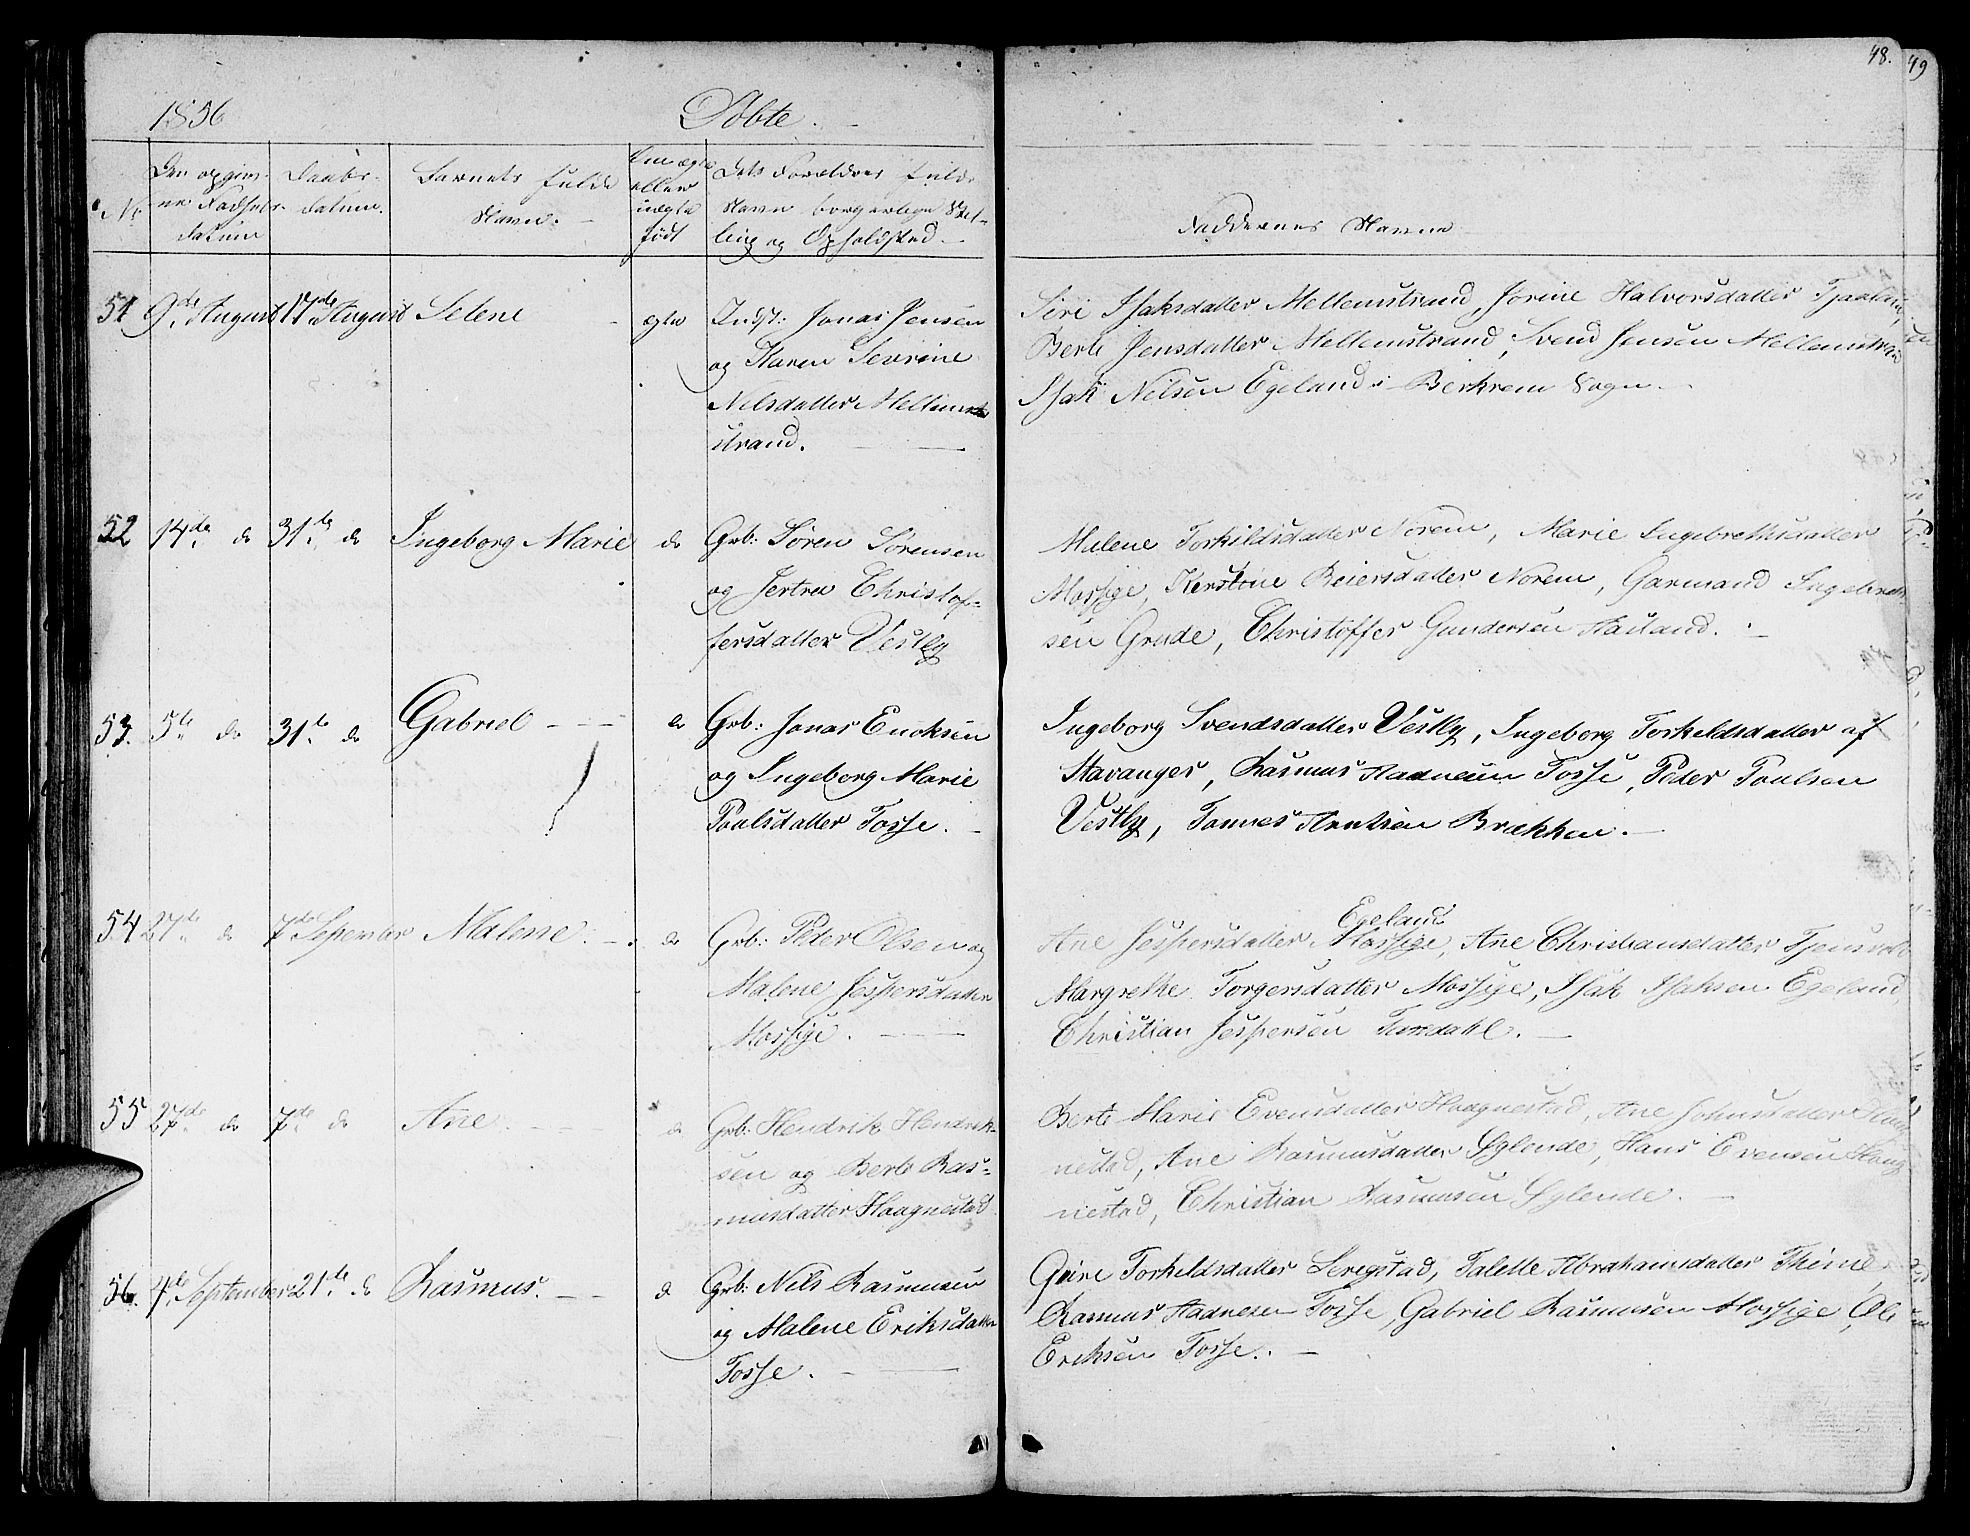 48. 49
1856 Døbte.
No
Den opgivne Fødselsdatum
Daabsdatum.
Barnets fulde Navn.
Om ægte eller uægte født
Dets Forældres fulde Navn borgerlige Stilling og Opholdsted.
Faddernes Navne
51 9de August 17de August Selene ægte Indst: Jonas Jensen
og Karen Severine
Nilsdatter Mellem
strand.
Siri Isaksdatter Mellemstrand, Jorine Halvorsdatter
Berte Jensdatter Mellemstrand, Svend Jensen Mellemstran
Isak Nilsen Egeland i Berkrem Sogn.
52 14de do 31te do Ingeborg Marie do Grb: Søren Sørensen
og Jertru Christof-
fersdatter Vestly
Malene Torkildsdatter Norem, Marie Ingebrethsdatter
Mossige, Kerstine Reiersdatter Norem, Garmand Ingebreth-
sen Grude, Christoffer Gundersen Haaland.
53. 5te do 31te do Gabriel do Grb: Jonas Enoksen
og Ingeborg Marie
Poulsdatter Fosse.
Ingeborg Svendsdatter Vestly, Ingeborg Torkeldsdatter af
Stavanger, Rasmus Aadnesen Fosse, Peder Poulsen
Vestly, Tønnes Arntsen Brækken.
54 27de do 7de September Malene. do Grb: Peter Olsen og
Malene Jespersdatter
Mossige.
Egeland
Ane Jespersdatter Mossige, Ane Christiansdatter Tjensvold
Margrethe Torgersdatter Mossige, Isak Isaksen Egeland
Christian Jespersen
55 27de do 7de do Ane. do Grb: Hendrik Hendrik-
sen og Berte Ras-
musdatter Haagnestad
Berte Marie Evensdatter Haagnestad, Ane Johnsdatter Haag
nestad, Ane Rasmusdatter Lylende, Hans Evensen Haag
nestad, Christian Rasmusen Lylende.
56. 4de September 21de do Rasmus. do Grb: Nils Rasmusen
og Malene Eriksdatter
Fosse.
Guire Torkeldsdatter Serigstad, Talette Abrahamsdatter Thime,
Rasmus Aadnesen Fosse, Gabriel Rasmusen Mossige, Ole
Eriksen Fosse.